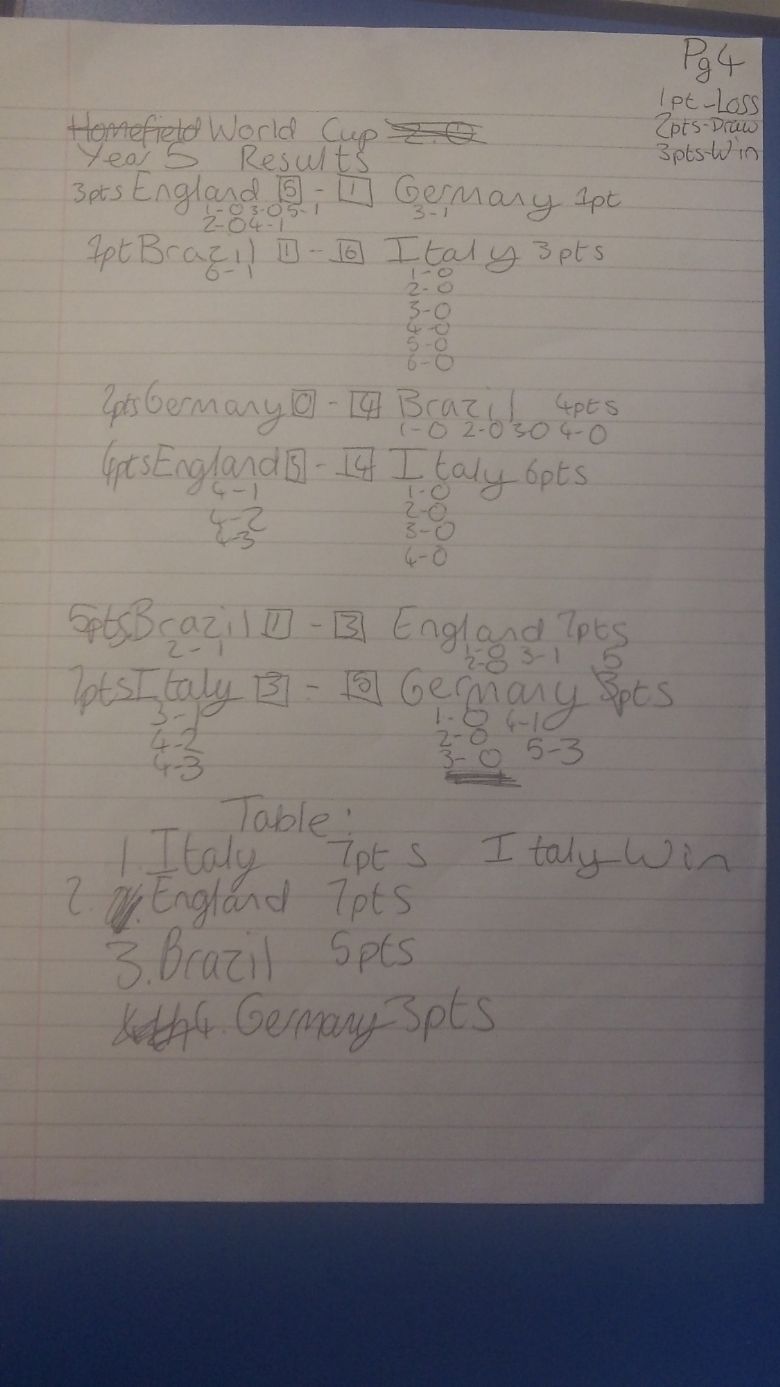 Pg4
1pt-Loss
2pts-Draw
3pts-Win
Homefield World Cup 2.0
Year 5 Results
3pts England 5 - 1 Germany 1pt
1-0 3-0 5-1 3-1
2-0 4-1
1pt Brazil 1 - 6 Italy 3pts
6-1 1-0
2-0
3-0
4-0
5-0
6-0
2pts Germany 0 - 4 Brazil 4pts
1-0 2-0 3-0 4-0
4pts England 3 - 4 Italy 6pts
4-1 1-0
4-2 2-0
4-3 3-0
4-0
5pts Brazil 1 - 3 England 7pts
2-1 1-0 3-1 5
2-0
7pts Italy 3 - 5 Germany pts
3-1 1-0 4-1
4-2 2-0
4-3 3-0 5-3
Table:
1. Italy 7pts Italy Win
2. England 7pts
3. Brazil 5pts
4. Germany 3pts